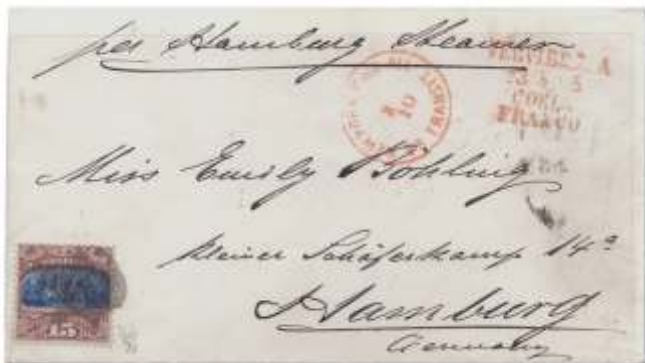 per Hamburg Steamer
FRANCO
Miss Emily Böhling
kleiner Schäferkamp 14a
Hamburg
Germany
15